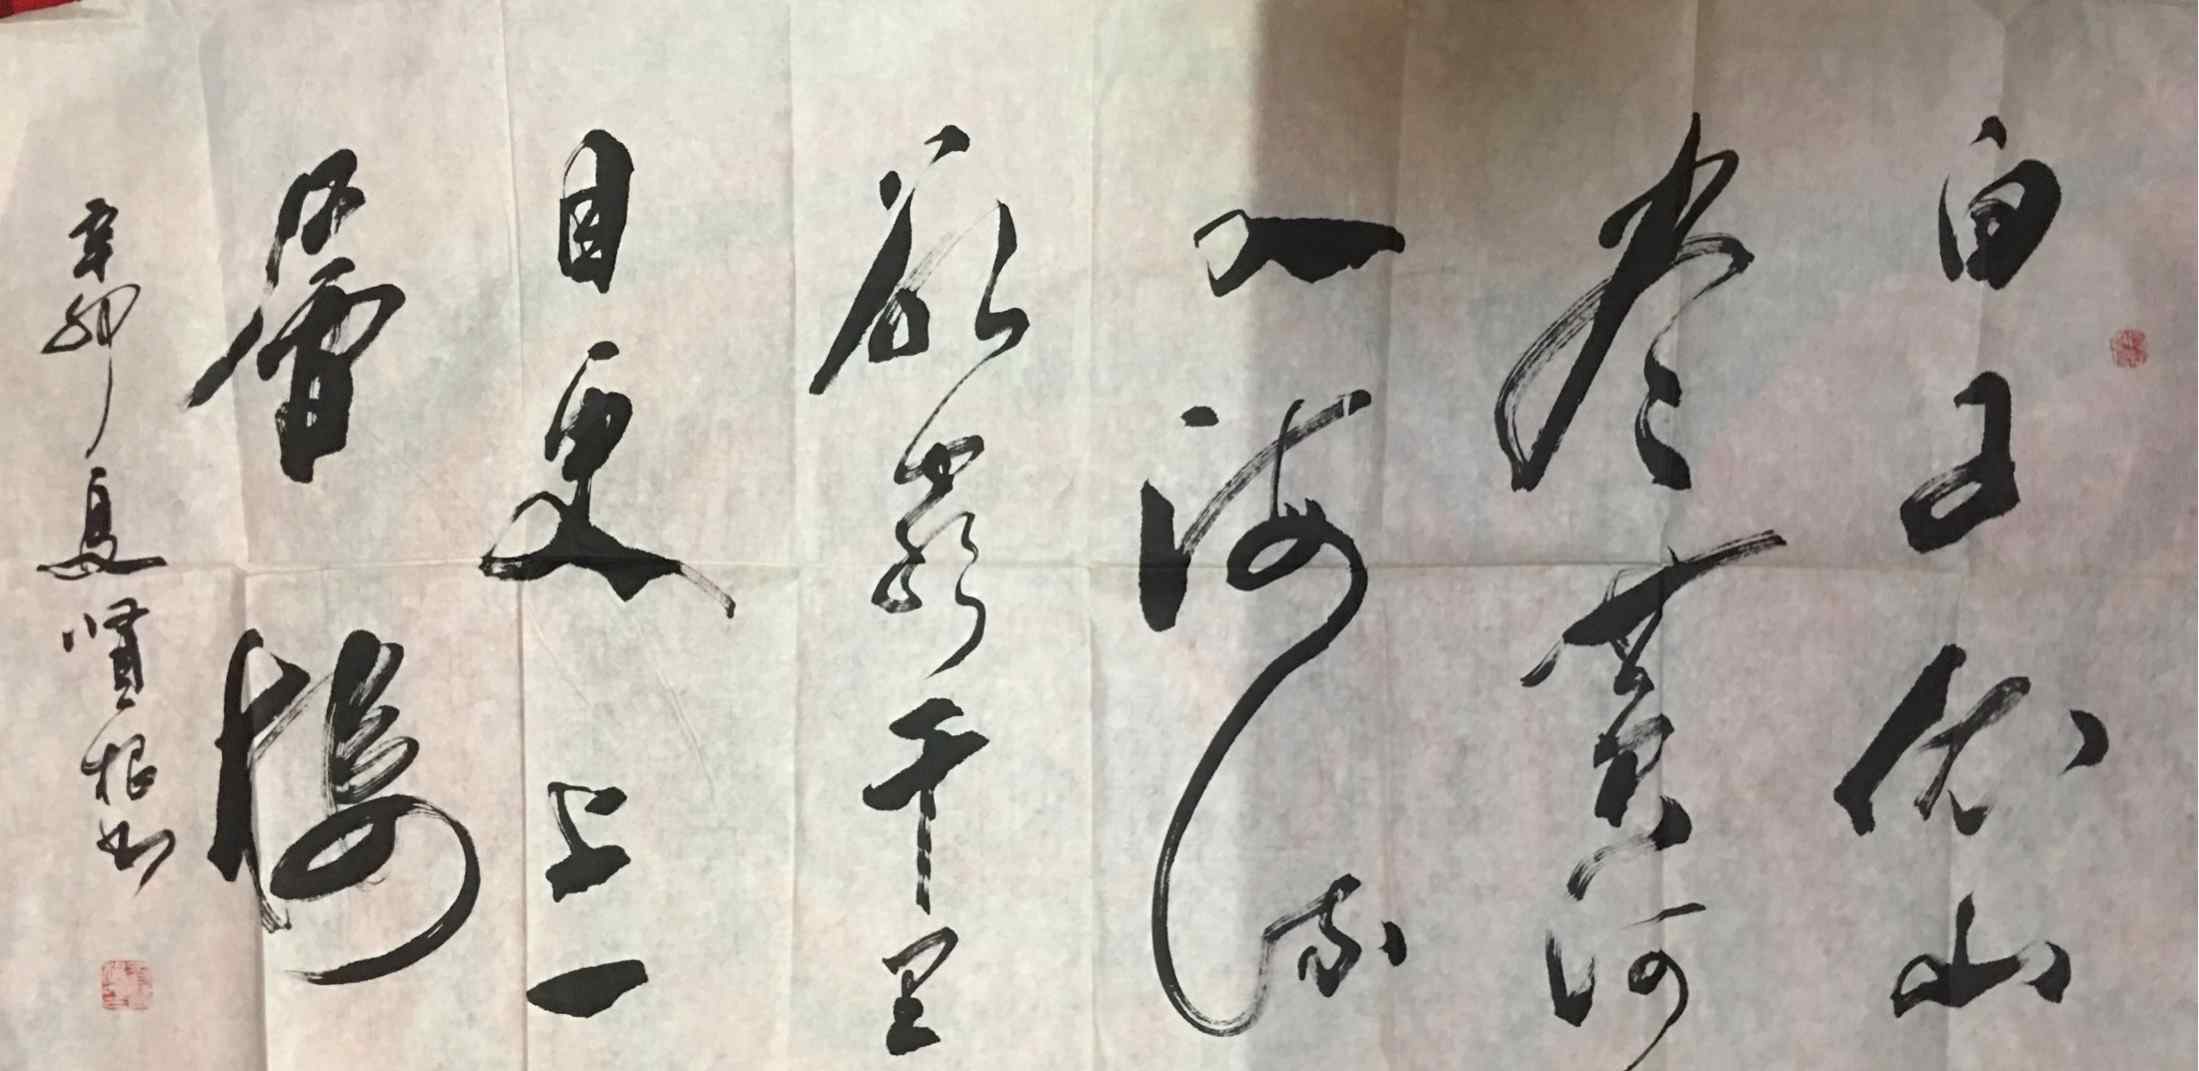 白日依山
尽黄河
入海流
欲穷千里
目更上一
层楼
辛卯夏贤根书